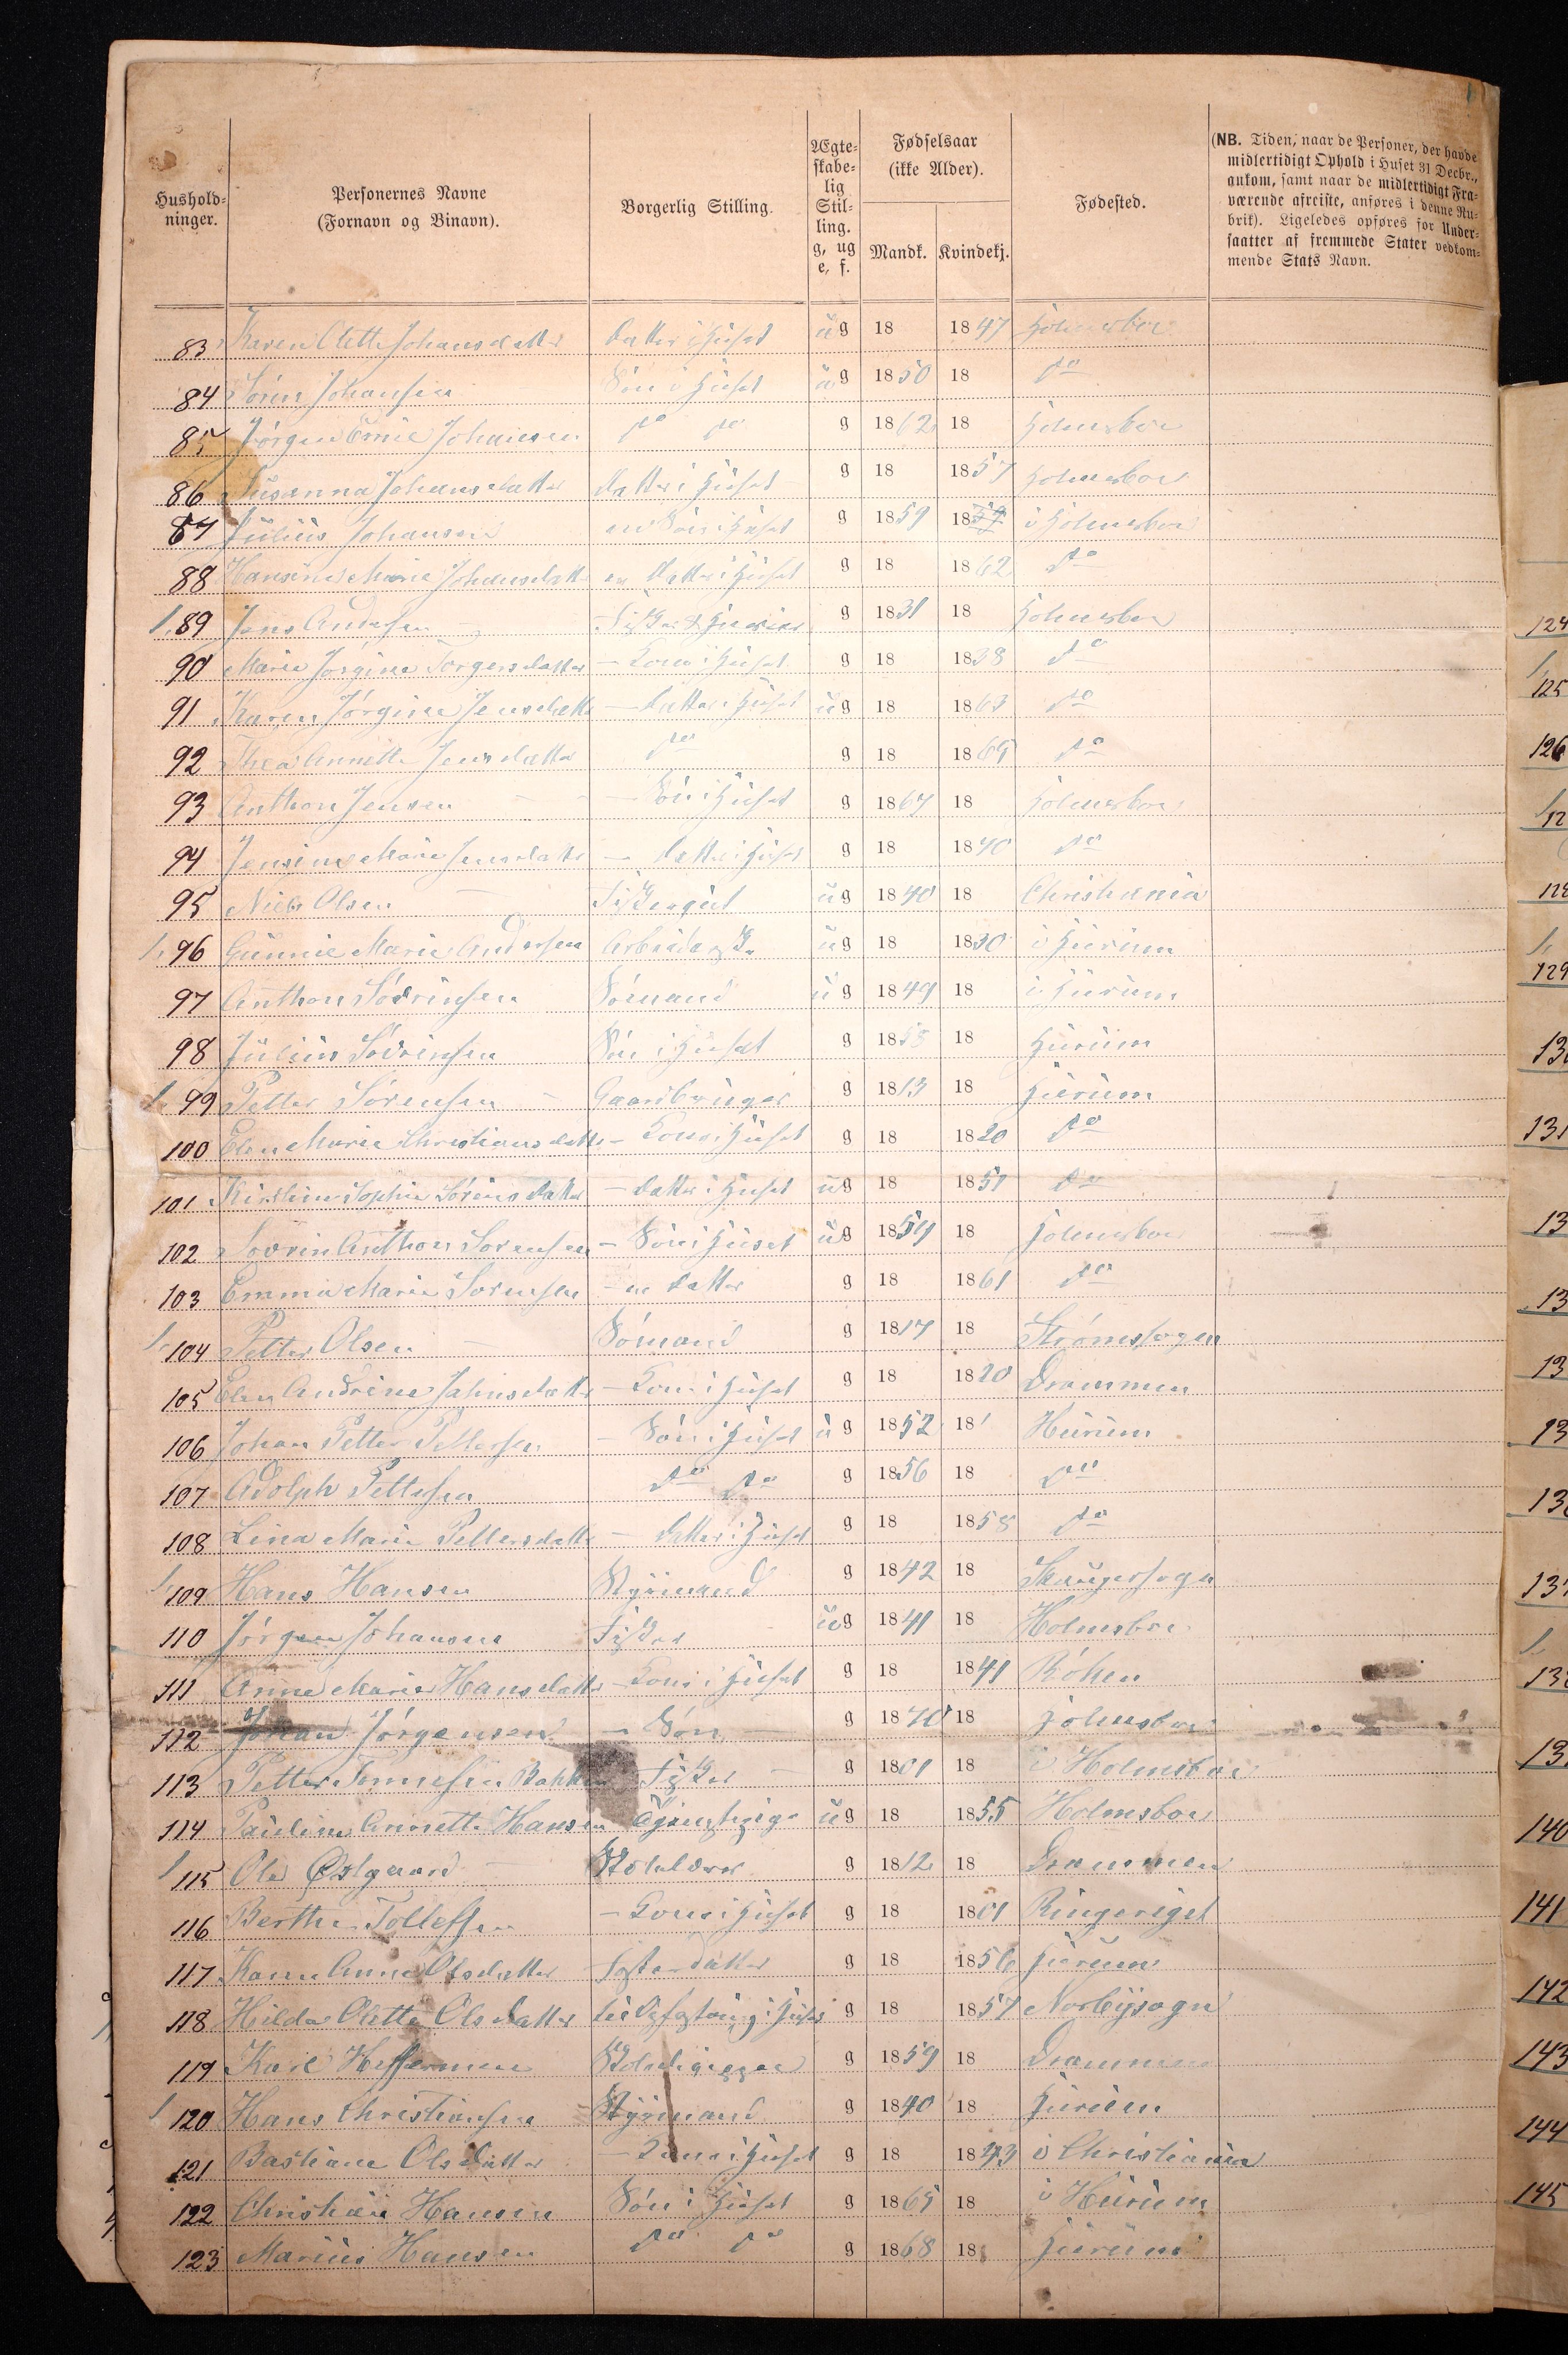 Hushold-
ninger.
Personernes Navne
(Fornavn og Binavn).
Borgerlig Stilling.
Ægte-
skabe-
lig
Stil-
ling.
g, ug
e, f.
Fødselsaar
(ikke Alder).
Mandk. Kvindekj.
Fødested.
(NB. Tiden, naar de Personer, der havde
midlertidigt Ophold i Huset 31 Decbr.,
ankom, samt naar de midlertidigt Fra-
værende afreiste, anføres i denne Ru-
brik). Ligeledes opføres for Under-
saatter af fremmede Stater vedkom-
mende Stats Navn.
83 Karen Olette Johansdatter Datter i Huset ug 18 1847 Holmsboe
84 Sören Johansen Sön i Huset ug 1850 18 do
85 Jörgen Johansen do do g 1862 18 Holmsboe
86 Susanna Johansdatter Datter i Huset g 18 1857 Holmsboe
87 Julius Johansen en Sön i Huset g 1859 18 i Holmsboe
88 Hansine Marie Johansdatt en Datter i Huset g 18 1862 do
1. 89 Jens Andersen Fisker g 1831 18 Holmsboe
90 Marie Jörgine Torgersdatter - Kone i Huset g 18 1838 do
91 Karen Jörgine Jensdatte - Datter i Huset ug 18 1863 do
92 Thea Annette Jensdatter do g 18 1865 do
93 Anthon Jensen - Sön i Huset g 1867 18 Holmsboe
94 Jensine Marie Jensdatte - Datter i Huset g 18 1840 do
95 Niels Olsen Fiskergut ug 1840 18 Christiania
1. 96 Gunnie Marie Andersen ug 18 1830 i Hurum
97 Anthon Sörinsen Sömand ug 1849 18 i Hurum
98 Julius Sörinsen Sön i Huset g 1858 18 Hurum
1. 99 Petter Sörensen Gaardbruger g 1813 18 Hurum
100 Elen Marie Christiansdatte - Kone i Huset g 18 1820 do
101 Kirstine Sophie Sörensdatter - Datter i Huset ug 18 1851 do
102 Sövrin Anthon Sörensen - Sön i Huset ug 1854 18 Holmsboe
103 Emma Marie Sörensen - en Datter g 18 1861 do
1. 104 Petter Olsen Sömand g 1817 18 Strömssogen
105 Elen Andrine Jahnsdatte - Kone i Huset g 18 1820 Drammen
106 Johan Petter Pettersen - Sön i Huset u g 1852 18 Hurum
107 Adolph Pettersen do do g 1856 18 do
108 Lina Marie Pettersdatte - Datter i Huset g 18 1858 do
1. 109 Hans Hansen Styrmand g 1842 18 Skougersogn
110 Jörgen Johansen Fisker ug 1841 18 Holmsboe
111 Anne Marie Hansdatter - Kone i Huset g 18 1841 Röken
112 Johan Jörgensen - Sön g 1870 18 Holmsboe
113 Petter Tønnesen Bakken Fisker g 1801 18 i Holmsboe
114 Pauline Annette Hansen ug 18 1855 Holmsboe
1 115 Ole Østgaard Skolelærer g 1812 18 Drammen
116 Berthe Tollefsen - Kone i Huset g 18 1801 Ringeriget
117 Karen Anne Olsdatter Fosterdatter g 18 1856 Hurum
118 Hilda Olette Olsdatter g 18 1857 Norbysogn
119 Karl Heffermen g 1859 18 Drammen
1. 120 Hans Christiansen Styrmand g 1840 18 Hurum
121 Bastiane Olsdatter - Kone i Huset g 18 1843 i Christiania
122 Christian Hansen Sön i Huset g 1865 18 i Hurum
123 Marius Hansen do do g 1868 18 Hurum
124
125
126
129
131
140
141
142
143
144
145